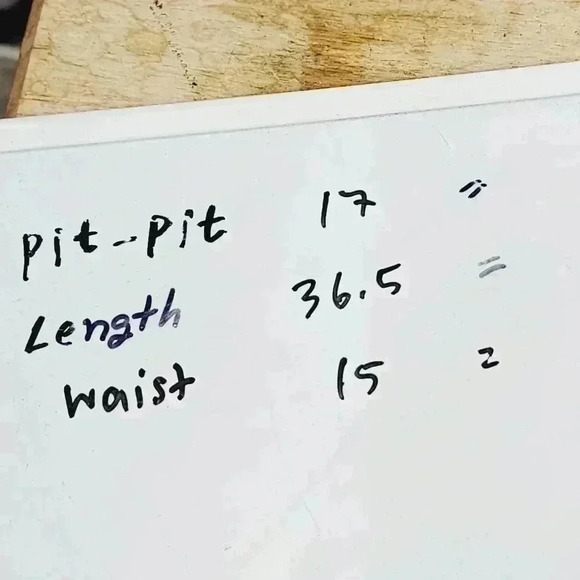 pit-pit 17 "
Length 36.5 =
waist 15 =